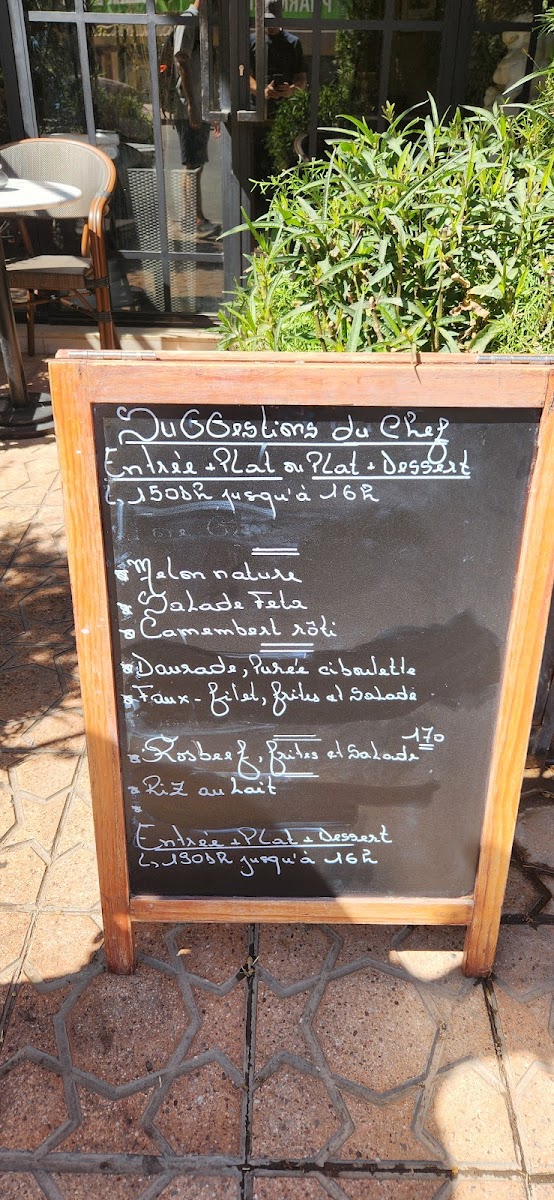 SuGGestions du Chef
Entrée + Plat ou Plat + Dessert
↳ 150Dh jusqu'à 16h
Melon nature
Salade Feta
Camembert rôti
Daurade, Purée ciboulette
Faux-filet, frites et Salade
Rosbeef, frites et Salade 170
Riz au Lait
Entrée + Plat + Dessert
↳ 190Dh jusqu'à 16h